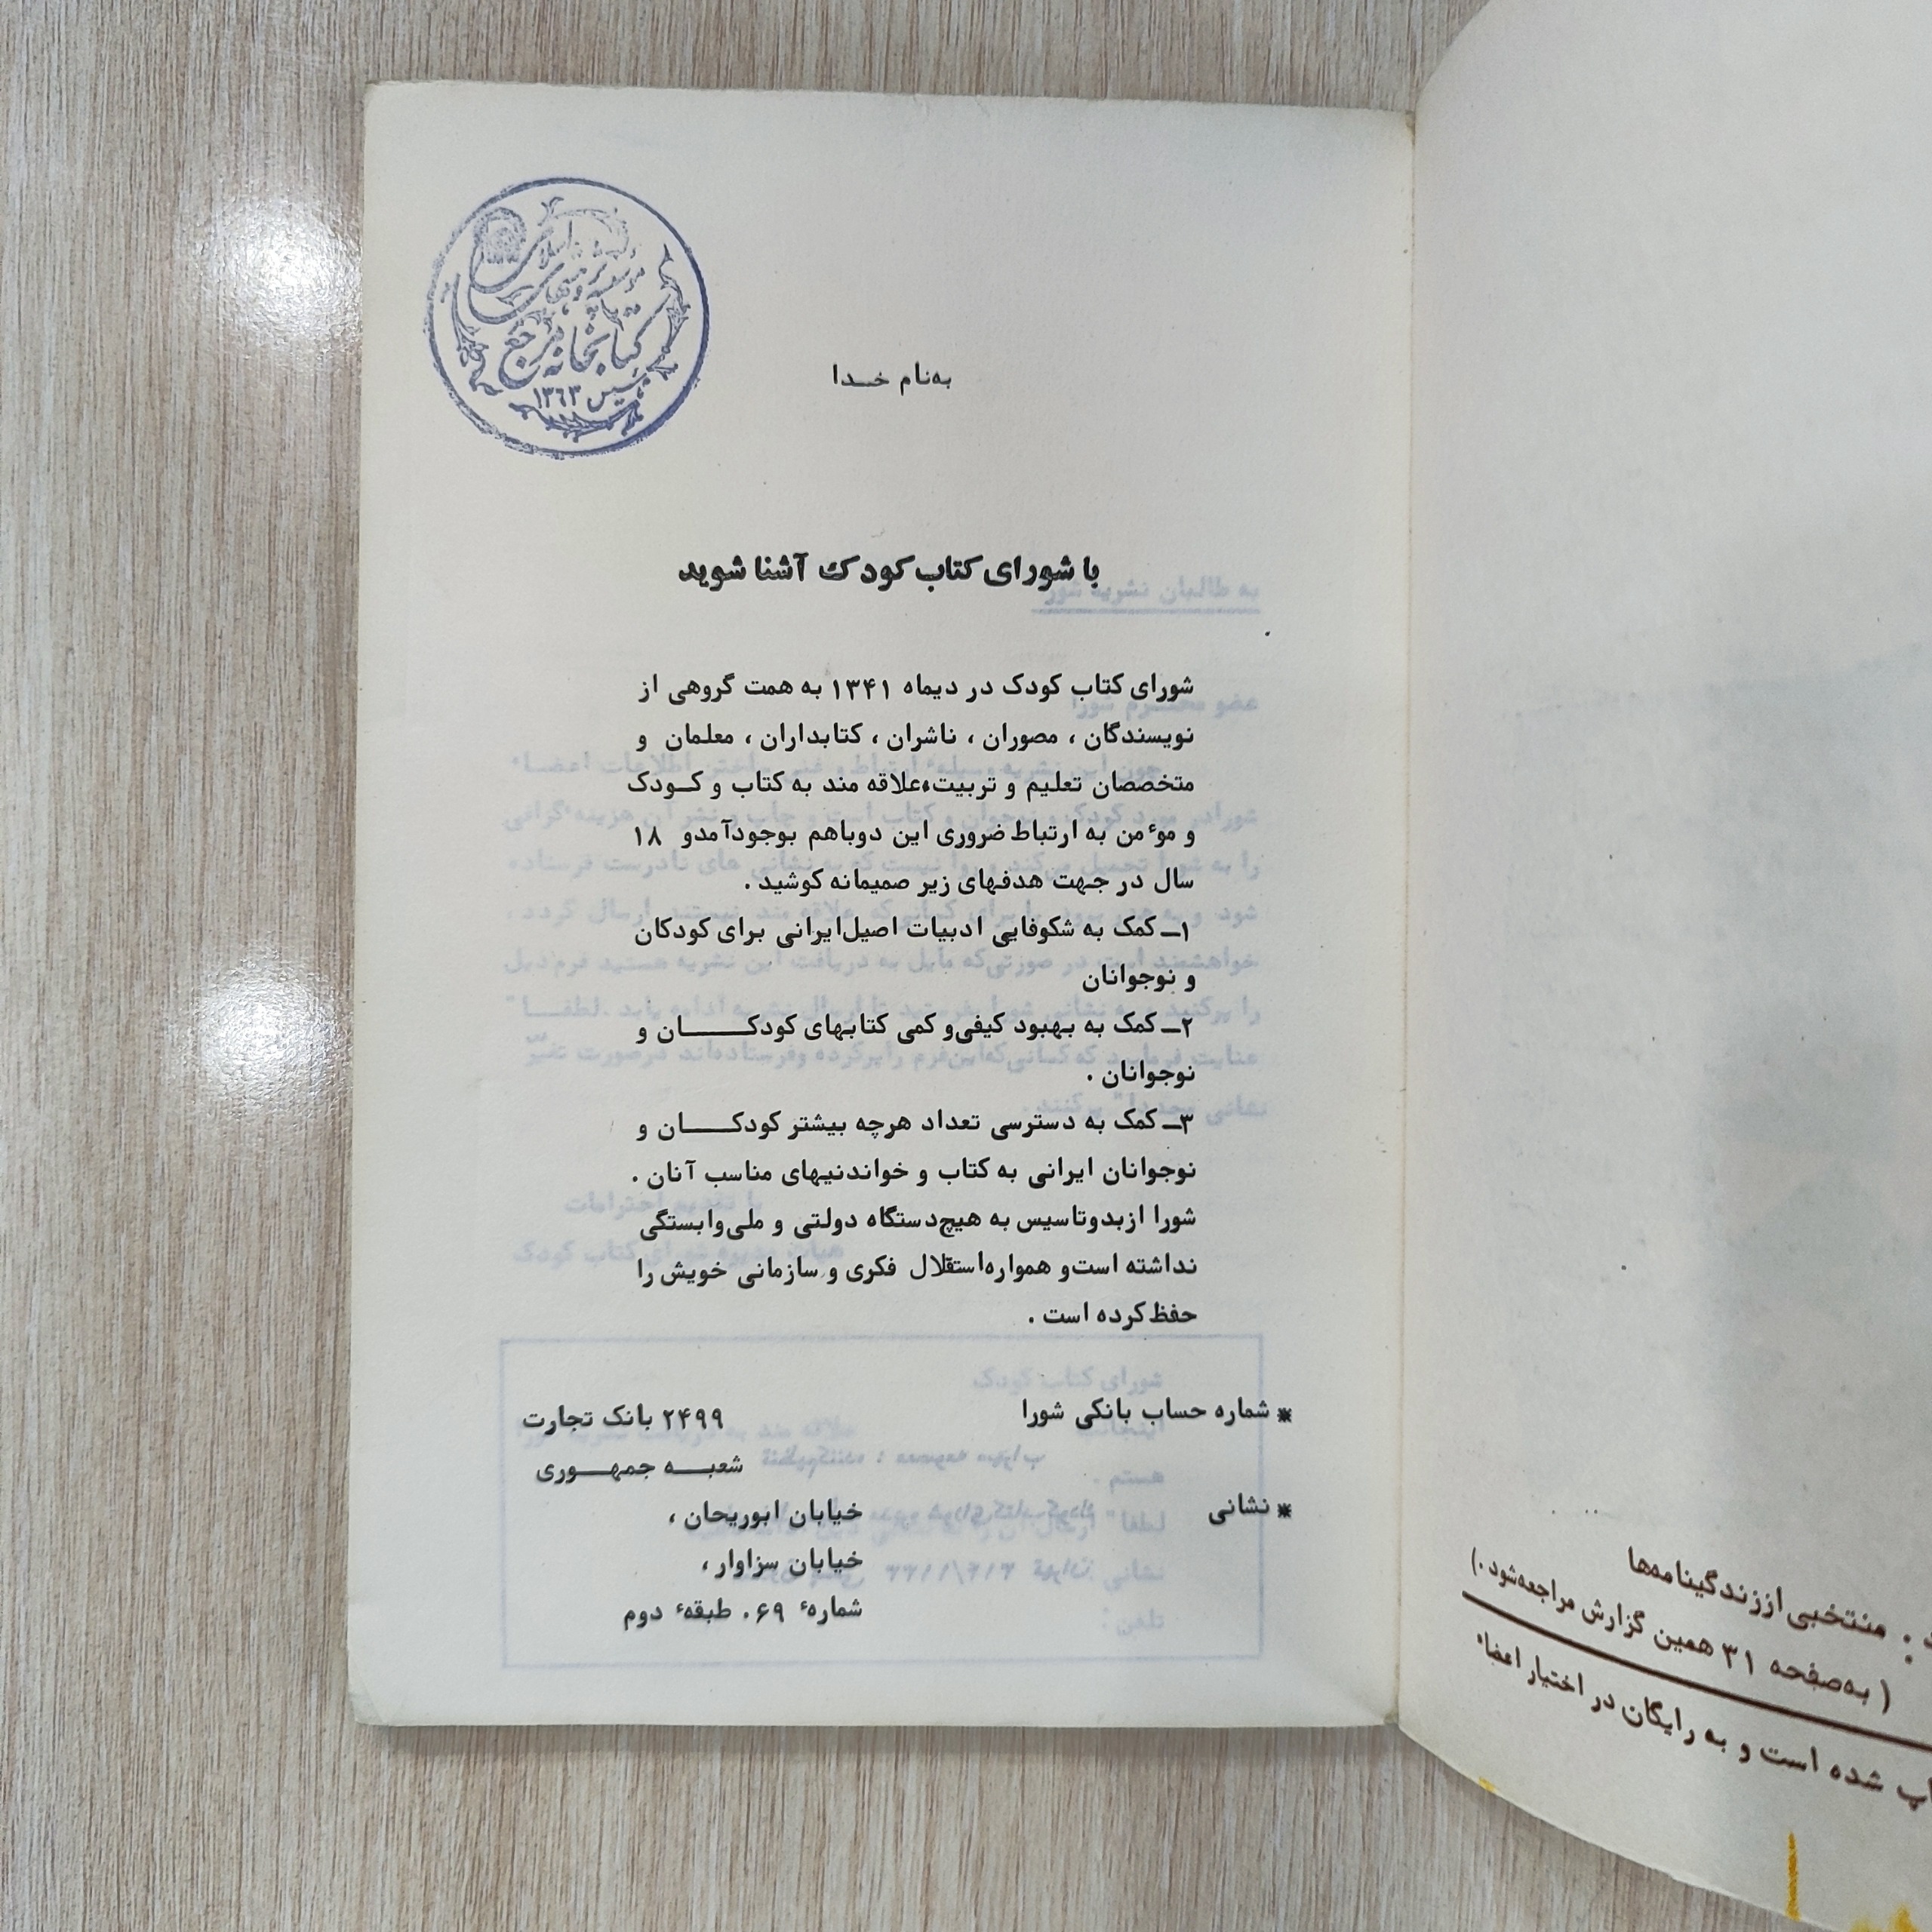 کتابخانه مرجع
تاسیس ۱۳۶۳
به‌نام خـدا
با شورای کتاب کودک آشنا شوید
شورای کتاب کودک در دیماه ۱۳۴۱ به همت گروهی از
نویسندگان ، مصوران ، ناشران ، کتابداران ، معلمان و
متخصصان تعلیم و تربیت،علاقه مند به کتاب و کـودک
و موٴمن به ارتباط ضروری این دوباهم بوجودآمدو ۱۸
سال در جهت هدفهای زیر صمیمانه کوشید .
۱ــ کمک به شکوفایی ادبیات اصیل‌ایرانی برای کودکان
و نوجوانان
۲ــ کمک به بهبود کیفی‌و کمی کتابهای کودکـــــان و
نوجوانان .
۳ــ کمک به دسترسی تعداد هرچه بیشتر کودکــــان و
نوجوانان ایرانی به کتاب و خواندنیهای مناسب آنان .
شورا ازبدوتاسیس به هیچ‌دستگاه دولتی و ملی‌وابستگی
نداشته است‌و همواره‌استقلال فکری و سازمانی خویش را
حفظ‌کرده است .
* شماره حساب بانکی شورا ۲۴۹۹ بانک تجارت
شعبـــه جمهــوری
* نشانی خیابان ابوریحان ،
خیابان سزاوار ،
شمارهٔ ۶۹. طبقهٔ دوم
منتخبی اززندگینامه‌ها
( به‌صفحه ۳۱ همین گزارش مراجعه‌شود .)
شده است و به رایگان در اختیار اعضاء